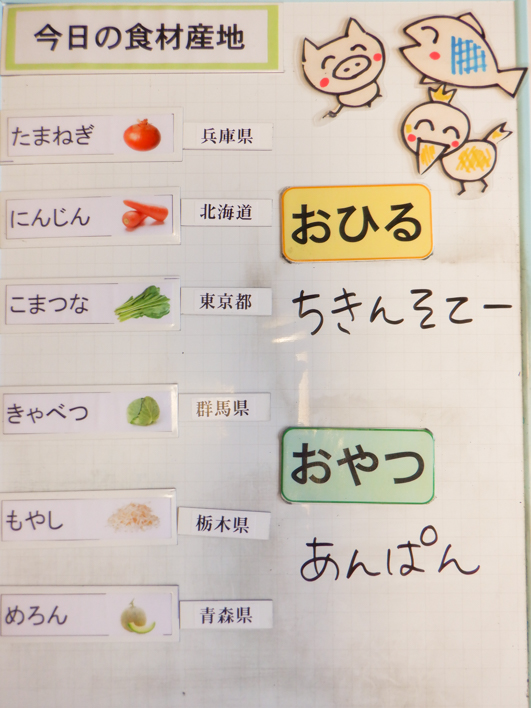 今日の食材産地
たまねぎ 兵庫県
にんじん 北海道
こまつな 東京都
きゃべつ 群馬県
もやし 栃木県
めろん 青森県
おひる
ちきんそてー
おやつ
あんぱん